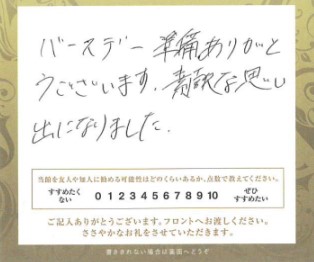 バースデー準備ありがと
うございます。素敵な思い
出になりました。
当館を友人や知人に勧める可能性はどのくらいあるか、点数で教えてください。
すすめたく
ない
0 1 2 3 4 5 6 7 8 9 10
ぜひ
すすめたい
ご記入ありがとうございます。フロントへお渡しください。
ささやかなお礼をさせていただきます。
書ききれない場合は裏面へどうぞ